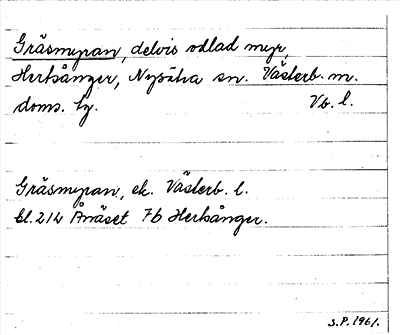 Gräsmyran, delvis odlad myr,
Herrånger, Nysätra sn. Västerb. m.
doms. hg. Vb. l.
Gräsmyran, ek. Västerb. l.
bl. 214 Ånäset 7b Herrånger.
S.P. 1961.